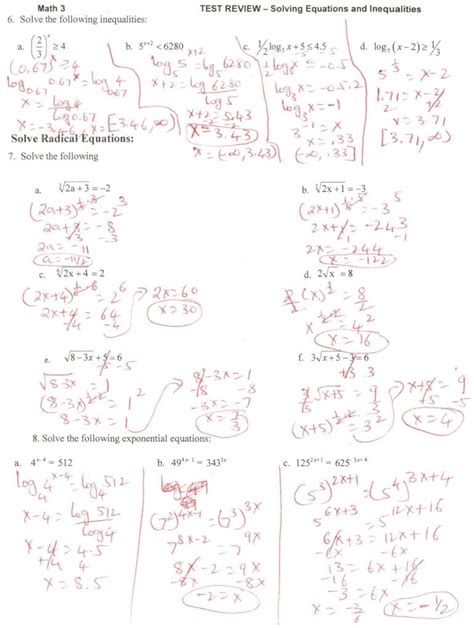 Math 3 TEST REVIEW – Solving Equations and Inequalities
6. Solve the following inequalities:
a. (2/3)^x ≥ 4
(0.67)^x ≥ 4
log_0.67 0.67^x = log_0.67 4
x = log 4 / log 0.67
x = -3.46, x = [3.46, ∞)
b. 5^(x+2) < 6280
log_5 5^(x+2) = log_5 6280
x+2 = log 6280 / log 5
x+2 = 5.43
x = 3.43
x = (-∞, 3.43)
c. ½log_3 x + 5 ≤ 4.5
½log_3 x ≤ -0.5
log_3 x = -0.5·2
log_3 x = -1
3^-1 = x
x = .33
(-∞, .33]
d. log_5 (x – 2) ≥ ⅓
5^⅓ = x-2
1.71 = x-2
x = 3.71
[3.71, ∞)
Solve Radical Equations:
7. Solve the following
a. ∛(2a+3) = –2
(2a+3)^(⅓·3) = -2^3
2a+3 = -8
-3 -3
2a = -11
a = -11/2
b. ⁵√(2x+1) = –3
(2x+1)^(⅕·5) = -3^5
2x+1 = -243
-1
2x = -244
x = -122
c. ⁶√(2x+4) = 2
(2x+4) = 2^6
2x+4 = 64
-4 -4
2x = 60
x = 30
d. 2√x = 8
(x)^½ = 8/2
x = 4^2
x = 16
e. √(8–3x) + 5 = 6
-5 -5
√(8-3x) = 1
(8-3x) = 1^2
8-3x = 1
8-3x = 1
-8 -8
-3x = -7
x = 7/3
f. 3√(x+5) – 3 = 6
+3 3
3/3 √(x+5) = 9/3
(x+5) = 3^2
x+5 = 9
-5 -5
x = 4
8. Solve the following exponential equations:
a. 4^(x–4) = 512
log_4 4^(x-4) = log_4 512
x-4 = log 512 / log 4
x-4 = 4.5
+4 4
x = 8.5
b. 49^(4x–1) = 343^(3x)
(7^2)^(4x-1) = (7^3)^(3x)
7^(8x-2) = 7^(9x)
8x-2 = 9x
-8x -8x
-2 = x
c. 125^(2x+1) = 625^(3x+4)
(5^3)^(2x+1) = (5^4)^(3x+4)
5^(6x+3) = 5^(12x+16)
6x+3 = 12x+16
-6x -6x
13 = 6x+16
-16 -16
-3 = 6x
x = -3/6
x = -1/2